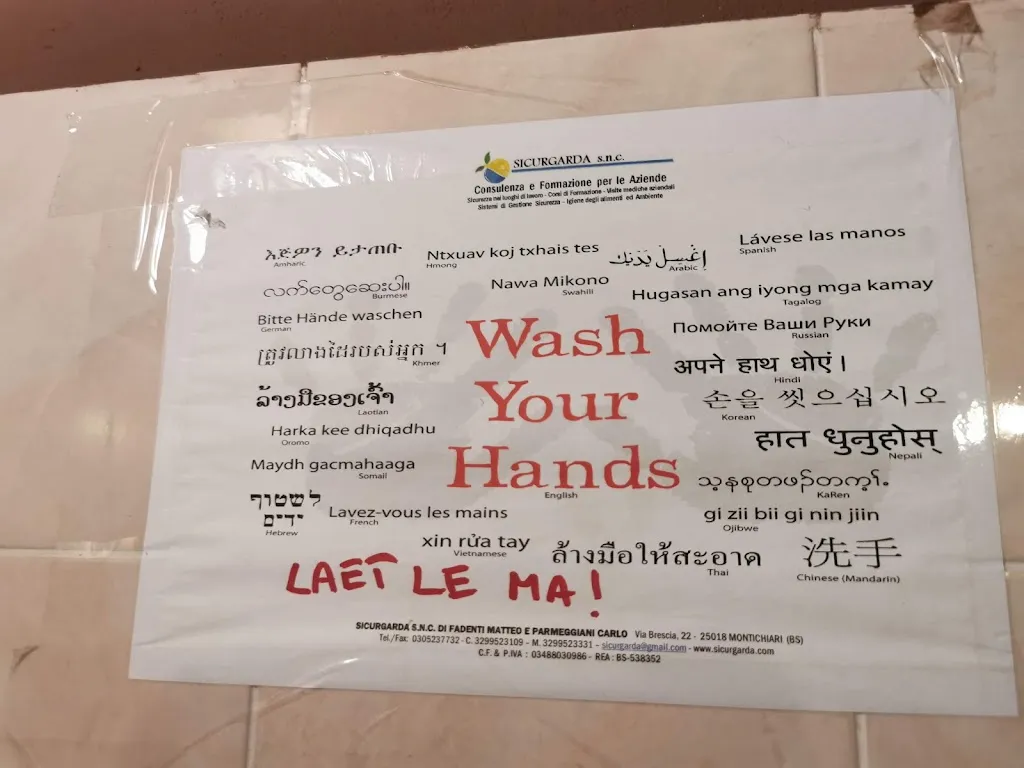 SICURGARDA s.n.c.
Consulenza e Formazione per le Aziende
Sicurezza nei luoghi di lavoro - Corsi di Formazione - Visite mediche aziendali
Sistemi di Gestione Sicurezza - Igiene degli alimenti ed Ambiente
እጅዎን ይታጠቡ
Amharic
Ntxuav koj txhais tes
Hmong
إغسل يديك
Arabic
Lávese las manos
Spanish
လက်တွေဆေးပါ။
Burmese
Nawa Mikono
Swahili
Hugasan ang iyong mga kamay
Tagalog
Bitte Hände waschen
German
Помойте Ваши Руки
Russian
ត្រូវលាងដៃរបស់អ្នក ។
Khmer
Wash
Your
Hands
English
अपने हाथ धोएं।
Hindi
ລ້າງມືຂອງເຈົ້າ
Laotian
손을 씻으십시오
Korean
Harka kee dhiqadhu
Oromo
हात धुनुहोस्
Nepali
Maydh gacmahaaga
Somali
KaRen
לשטוף
ידיים
Hebrew
Lavez-vous les mains
French
gi zii bii gi nin jiin
Ojibwe
xin rửa tay
Vietnamese
ล้างมือให้สะอาด
Thai
洗手
Chinese (Mandarin)
LAET LE MA!
SICURGARDA S.N.C. DI FADENTI MATTEO E PARMEGGIANI CARLO Via Brescia, 22 - 25018 MONTICHIARI (BS)
Tel./Fax: 0305237732 - C. 3299523109 - M. 3299523331 - sicurgarda@gmail.com - www.sicurgarda.com
C.F. & P.IVA : 03488030986 - REA : BS-538352